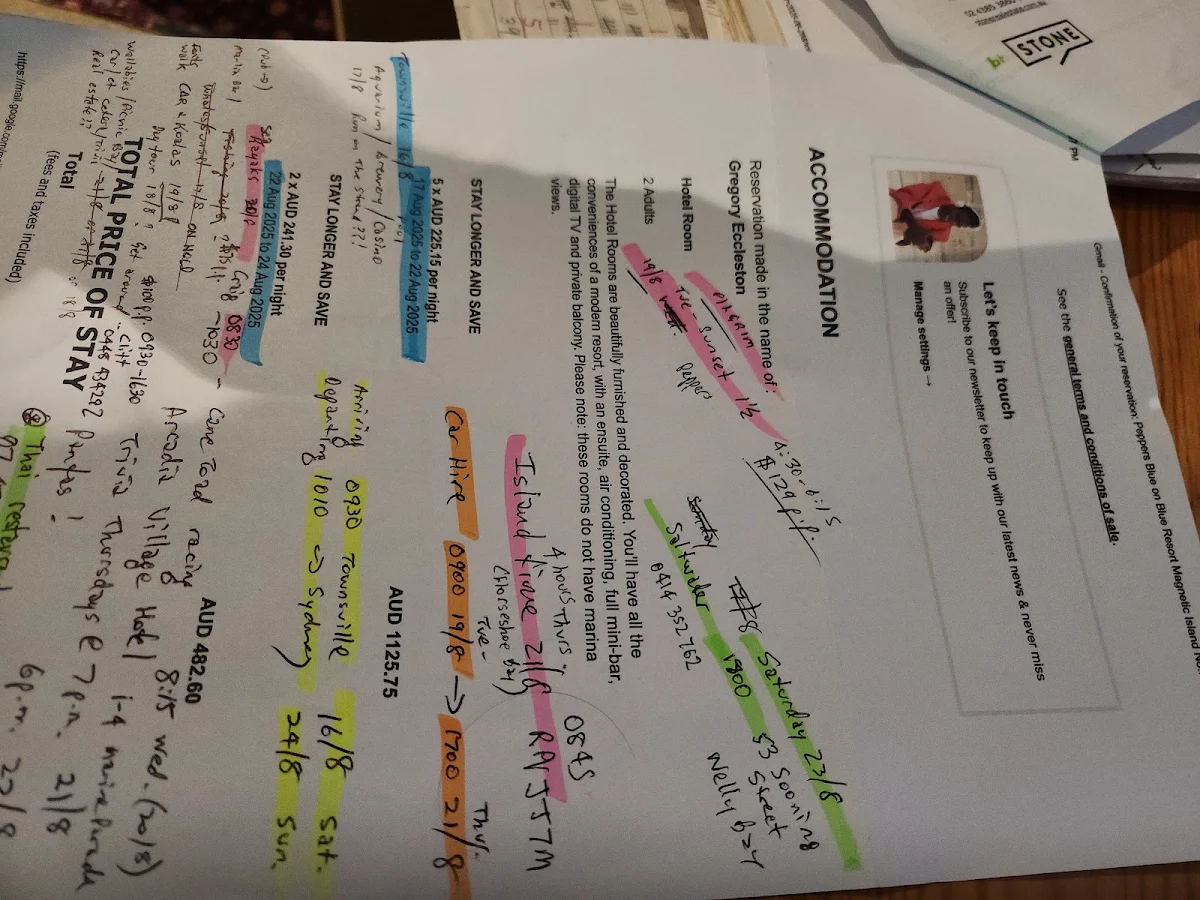 STONE
Gmail - Confirmation of your reservation: Peppers Blue on Blue Resort Magnetic Island
PM
See the general terms and conditions of sale.
Let's keep in touch
Subscribe to our newsletter to keep up with our latest news & never miss
an offer!
Manage settings →
ACCOMMODATION
Reservation made in the name of:
Gregory Eccleston
PILGRIM
Tue - Sunset 1½
19/8
4:30-6:15
$129 p.p.
Saturday 23/8
Saltwater 1800
53 Sooning
Street
Nelly bay
Hotel Room
2 Adults
The Hotel Rooms are beautifully furnished and decorated. You'll have all the
conveniences of a modern resort, with an ensuite, air conditioning, full mini-bar,
digital TV and private balcony. Please note: these rooms do not have marina
views.
4 hours Thurs.
0845
Island time 21/8 RPIJJ7M
(Horseshoe Bay)
STAY LONGER AND SAVE
Tue -
Thur.
Car Hire 0900 19/8 → 1700 21/8
5 x AUD 225.15 per night
17 Aug 2025 to 22 Aug 2025
AUD 1125.75
Townsville 16/8
Aquarium / brewery / Casino
17/8 Run on the Strand ??!
Arriving 0930 Townsville 16/8 Sat.
Departing 1010 → Sydney 24/8 Sun.
STAY LONGER AND SAVE
2 x AUD 241.30 per night
22 Aug 2025 to 24 Aug 2025
AUD 482.60
Sea Kayaks 20/8
0830
-1030
Cane Toad racing 8:15 wed - (20/8)
Arcadia Village Hotel 1-4 marine Parade
Trivia Thursdays @ 7p.m. 21/8
walk CAR & Koalas 19/8
Day tour 18/8? Get around
0930-1630
Wallabies / Picnic Bay
Real estate??
TOTAL PRICE OF STAY
Total
(fees and taxes included)
Thai
6p.m. 22/8
https://mail.google.com/